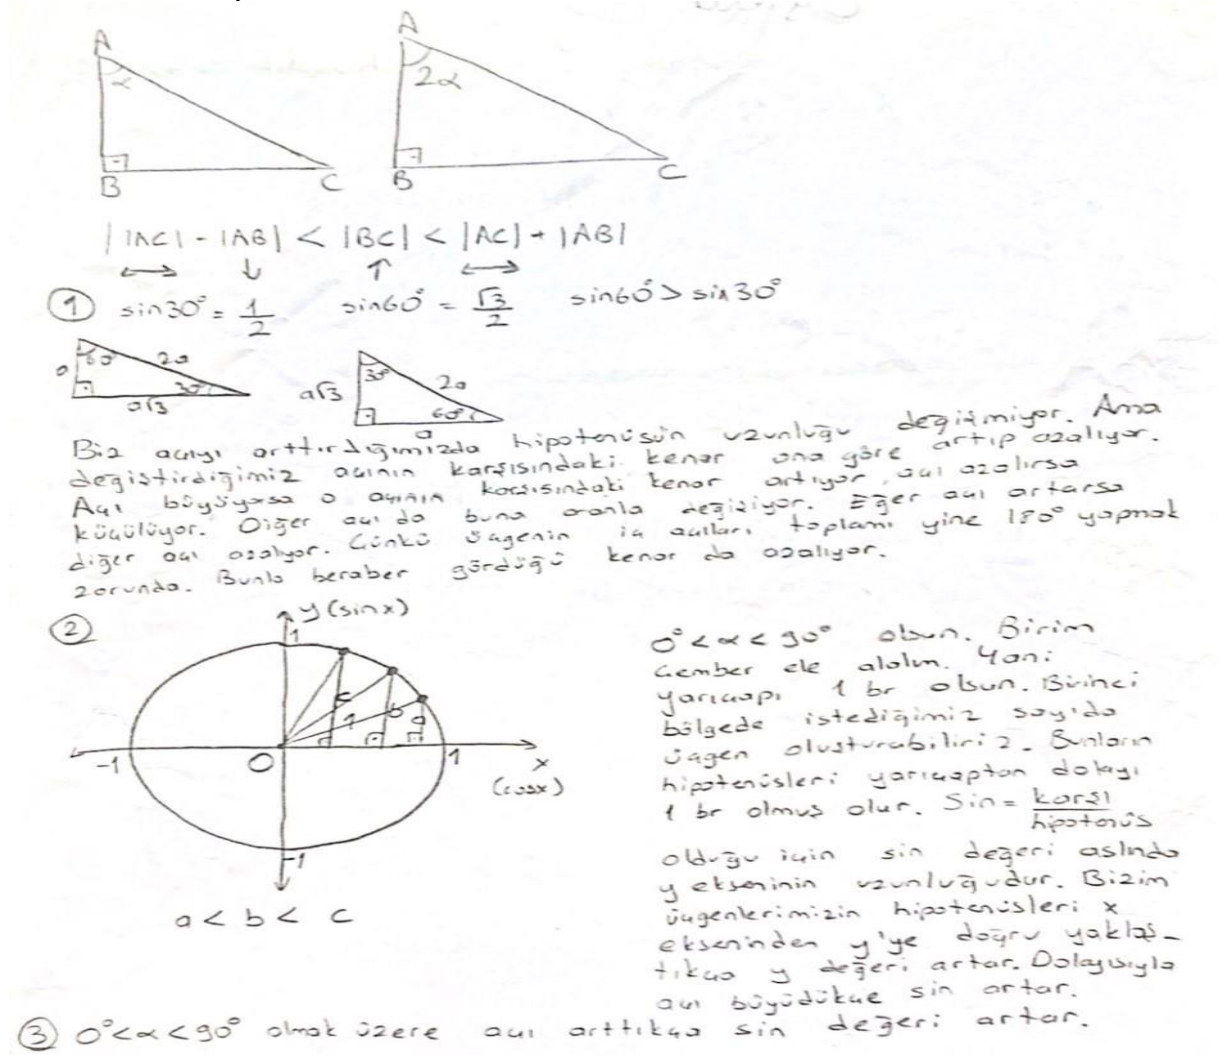 A
α
B
C
A
2α
B
C
||AC| - |AB|| < |BC| < |AC| + |AB|
↔ ↓ ↑ ↔
① sin30° = 1/2 sin60° = √3/2 sin60° > sin30°
60° 2a
a
30°
a√3
30° 2a
a√3
60°
a
Biz açıyı arttırdığımızda hipotenüsün uzunluğu değişmiyor. Ama
değiştirdiğimiz açının karşısındaki kenar ona göre artıp azalıyor.
Açı büyüyorsa o açının karşısındaki kenar artıyor, açı azalırsa
küçülüyor. Diğer açı da buna oranla değişiyor. Eğer açı artarsa
diğer açı azalıyor. Çünkü üçgenin iç açıları toplamı yine 180° yapmak
zorunda. Bunla beraber gördüğü kenar da azalıyor.
②
y (sinx)
1
c
1
b
a
-1
O
1
x
(cosx)
-1
a < b < c
0° < α < 90° olsun. Birim
çember ele alalım. Yani
yarıçapı 1 br olsun. Birinci
bölgede istediğimiz sayıda
üçgen oluşturabiliriz. Bunların
hipotenüsleri yarıçaptan dolayı
1 br olmuş olur. Sin = karşı/hipotenüs
olduğu için sin değeri aslında
y ekseninin uzunluğudur. Bizim
üçgenlerimizin hipotenüsleri x
ekseninden y'ye doğru yaklaş-
tıkça y değeri artar. Dolayısıyla
açı büyüdükçe sin artar.
③ 0° < α < 90° olmak üzere açı arttıkça sin değeri artar.